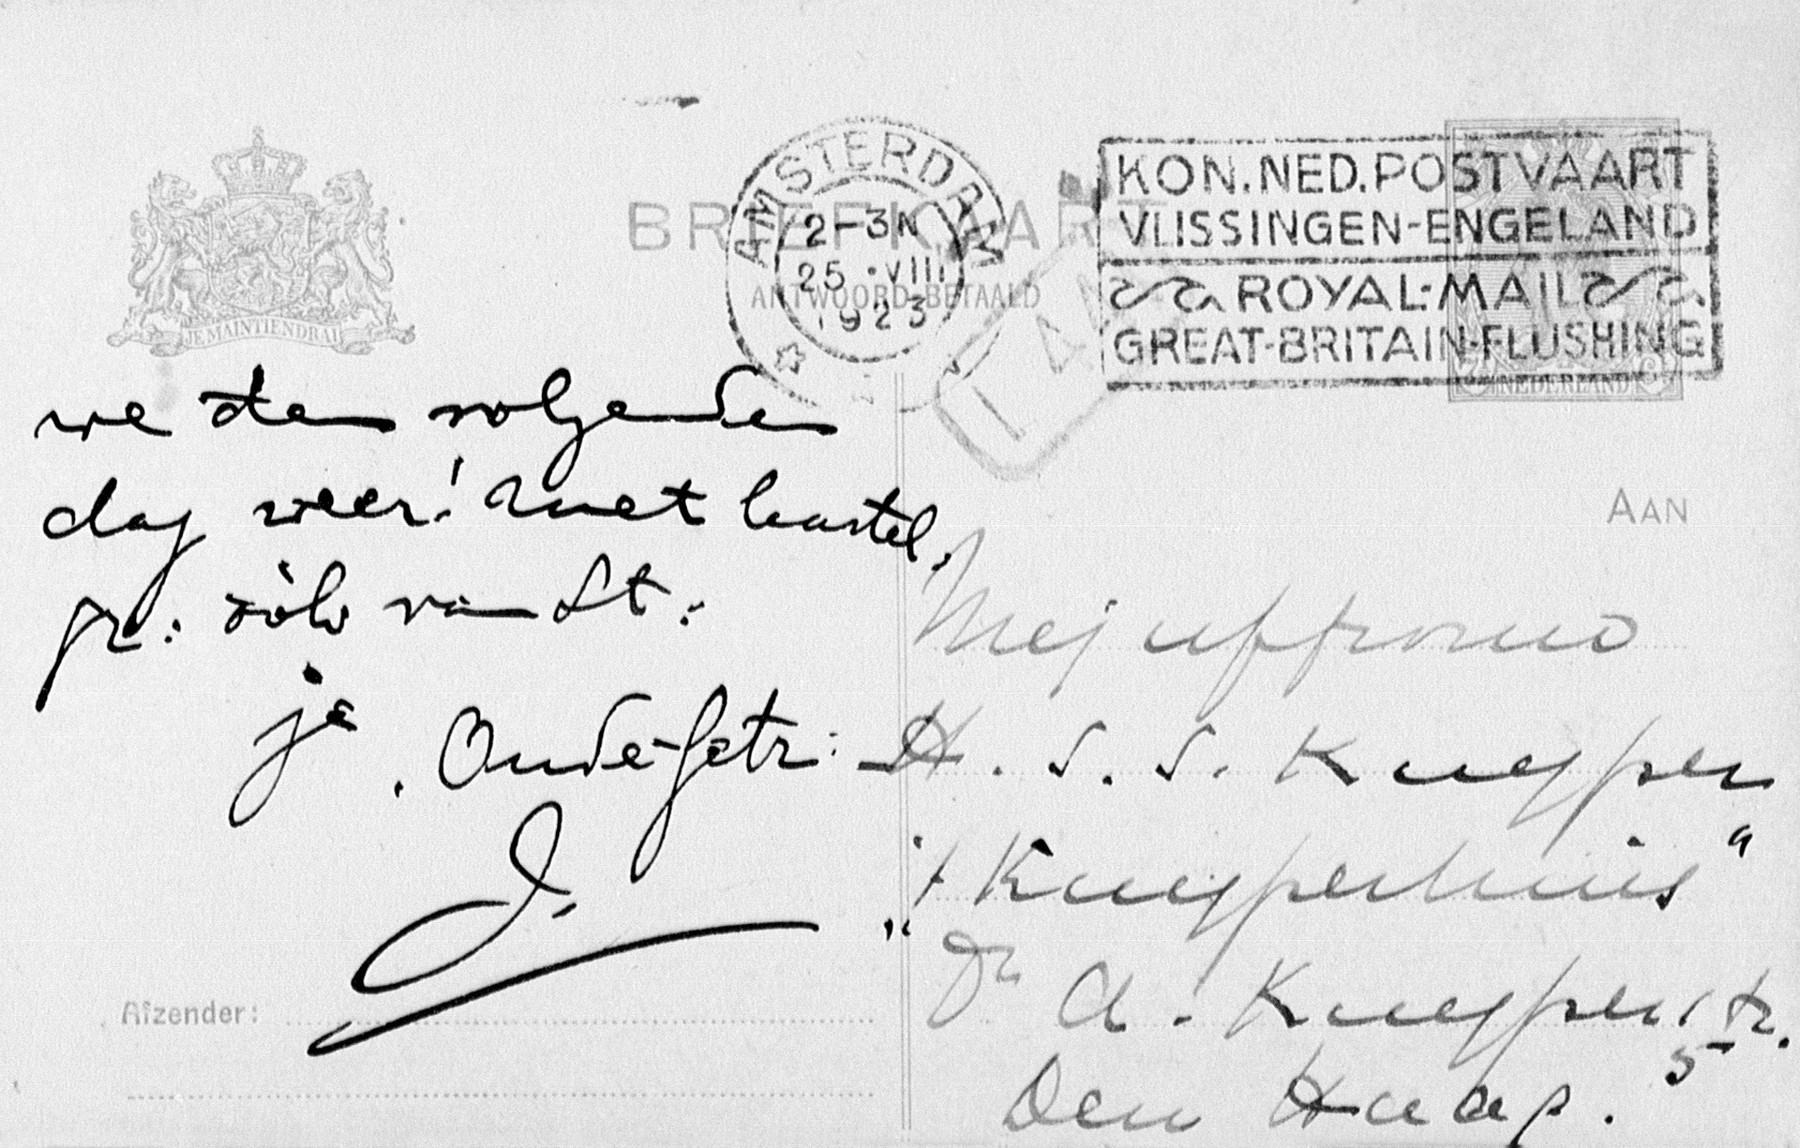 BRIEFKAART
ANTWOORD BETAALD
JE MAINTIENDRAI
AMSTERDAM
2-3N
25.VIII
1923
KON.NED.POSTVAART
VLISSINGEN-ENGELAND
ROYAL-MAIL
GREAT-BRITAIN-FLUSHING
NEDERLAND
we den volgenden
dag weer! Met hartel.
gr: oòk van
je Oude-getr:
J.
Afzender:
AAN
Mejuffrouw
H. S. S. Kuyper
"Kuyperhuis"
Dr A. Kuyperstr.
5
Den Haag.